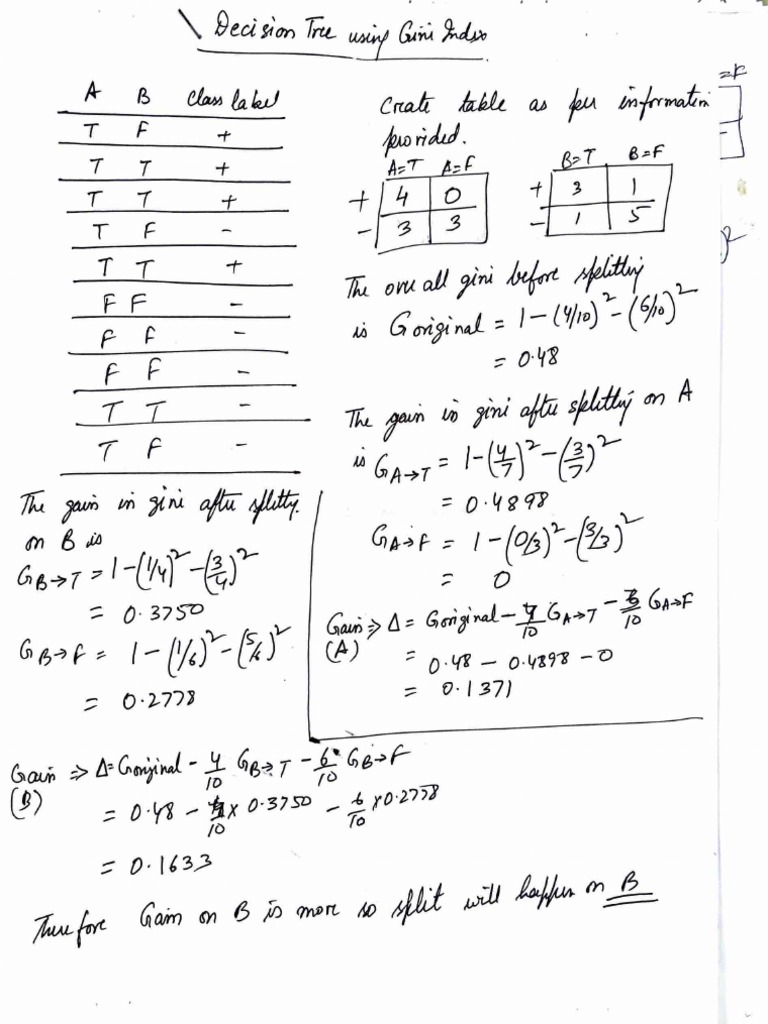 Decision Tree using Gini Index
A B class label
T F +
T T +
T T +
T F -
T T +
F F -
F F -
F F -
T T -
T F -
Create table as per information
provided.
A=T A=F
+ 4 0
- 3 3
B=T B=F
+ 3 1
- 1 5
The over all gini before splitting
is G original = 1-(4/10)²-(6/10)²
= 0.48
The gain in gini after splitting on A
is G A→T = 1-(4/7)²-(3/7)²
= 0.4898
G A→F = 1-(0/3)²-(3/3)²
= 0
Gain ⇒ Δ = G original - 7/10 G A→T - 3/10 G A→F
(A)
= 0.48 - 0.4898 - 0
= 0.1371
The gain in gini after splitty.
on B is
G B→T = 1-(1/4)²-(3/4)²
= 0.3750
G B→F = 1-(1/6)²-(5/6)²
= 0.2778
Gain ⇒ Δ= G original - 4/10 G B→T - 6/10 G B→F
(B)
= 0.48 - 4/10 x 0.3750 - 6/10 x 0.2778
= 0.1633
Therefore Gain on B is more so split will happen on B